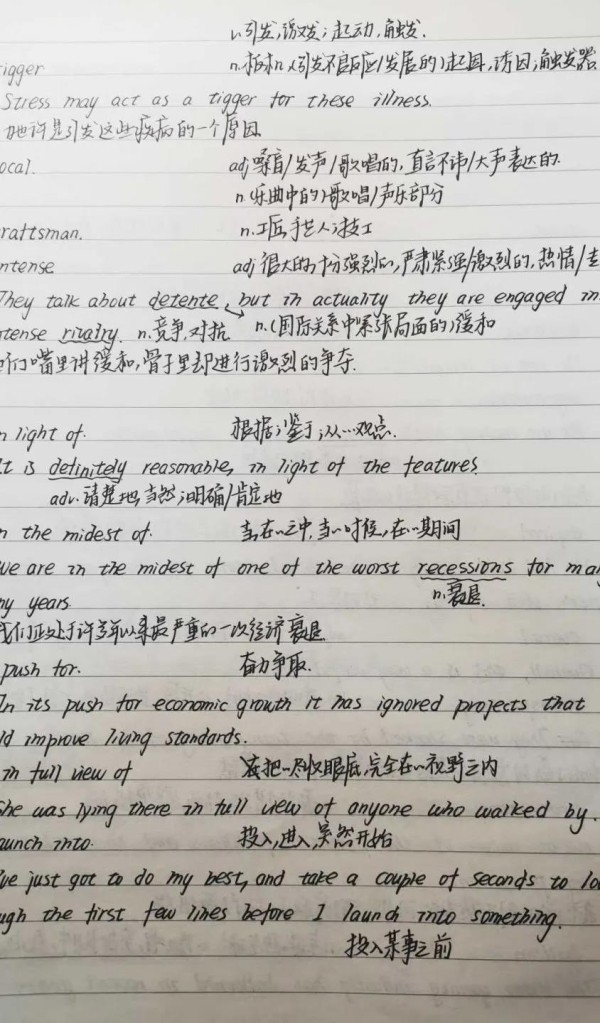 v.引发,激发;起动,触发.
rigger n.扳机;(引发不良反应/发展的)起因,诱因;触发器
Stress may act as a tigger for these illness.
力也许是引发这些疾病的一个原因
ocal. adj嗓音/发声/歌唱的,直言不讳/大声表达的.
n.(乐曲中的)歌唱/声乐部分
raftsman. n.工匠,手艺人;技工
ntense adj很大的,十分强烈的,严肃紧张/激烈的,热情/
They talk about detente, but in actuality they are engaged in
ntense rivalry. n.竞争,对抗 n.(国际关系中紧张局面的)缓和
他们嘴里讲缓和,骨子里却进行激烈的争夺.
n light of. 根据;鉴于;从…观点.
It is definitely reasonable, in light of the features
adv.清楚地,当然;明确/肯定地
n the midest of. 当,在…之中,当…时候,在…期间
We are in the midest of one of the worst recessions for ma
ny years n.衰退.
我们正处于许多年以来最严重的一次经济衰退
push for. 奋力争取.
In its push for economic growth it has ignored projects that
ld improve living standards.
in full view of 把…尽收眼底,完全在…视野之内
She was lying there in full view of anyone who walked by.
aunch into. 投入,进入,突然开始
've just got to do my best, and take a couple of seconds to lo
ugh the first few lines before I launch into something.
投入某事之前